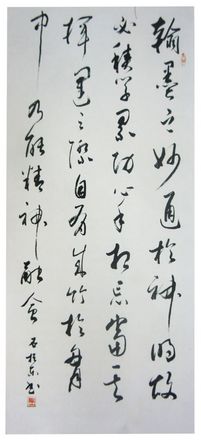 翰墨之妙通於神明故
必積學累功心手相忘當其
揮運之際自有成竹於胸
中乃能精神融會